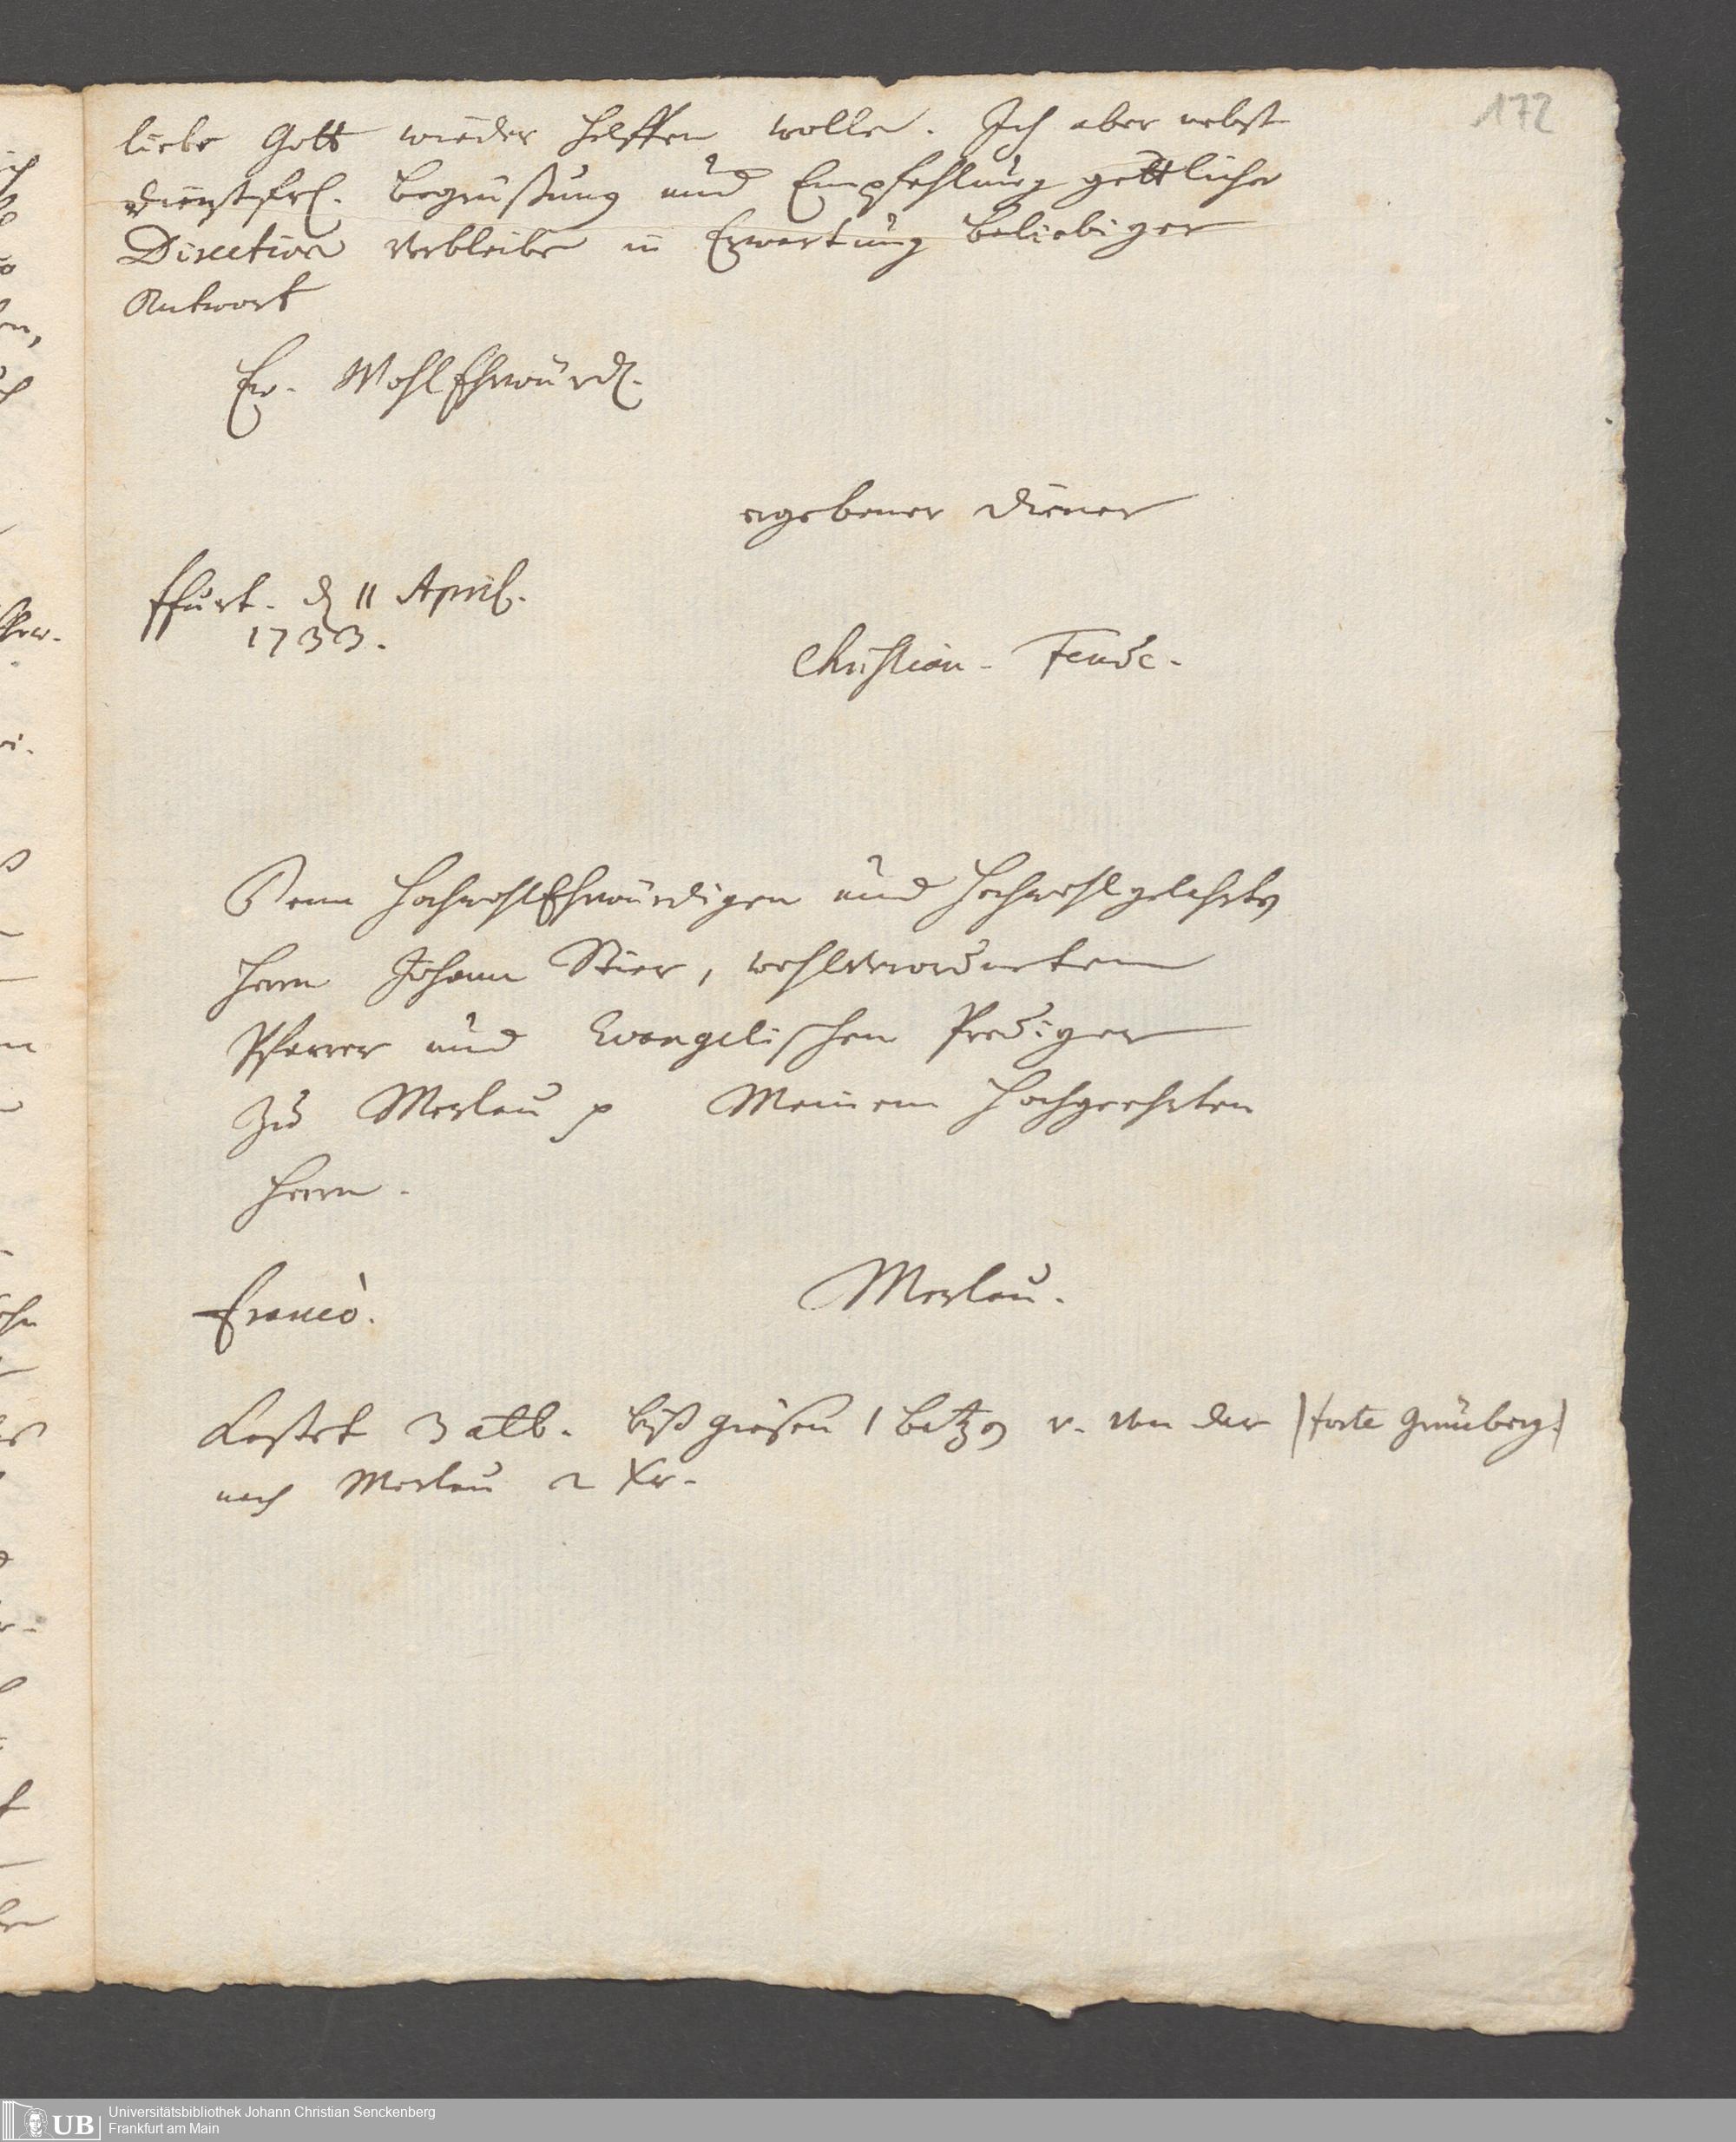 172
liebe Gott wieder helffen wolle. Ich aber nebst
dienstfrl. begrüßung und Empfehlung göttlicher
Direction verbleibe in Erwartung beliebiger
Antwort
Ew. WohlEhrwürd.
ergebener Diener
ffurt. d 11 April.
1733.
Christian Fende.
Dem HochwohlEhrwürdigen und Hochwohlgelehrten
Herrn Johann Stier, wohlverordnetem
Pfarrer und Evangelischen Prediger
zu Merlau p Meinem Hochgeehrten
Herrn.
Merlau.
Franco.
Kostet 3 alb. biß giesen 1 batzen v. von dar (forte Grünberg)
nach Merlau 2 Xr.
UB Universitätsbibliothek Johann Christian Senckenberg
Frankfurt am Main